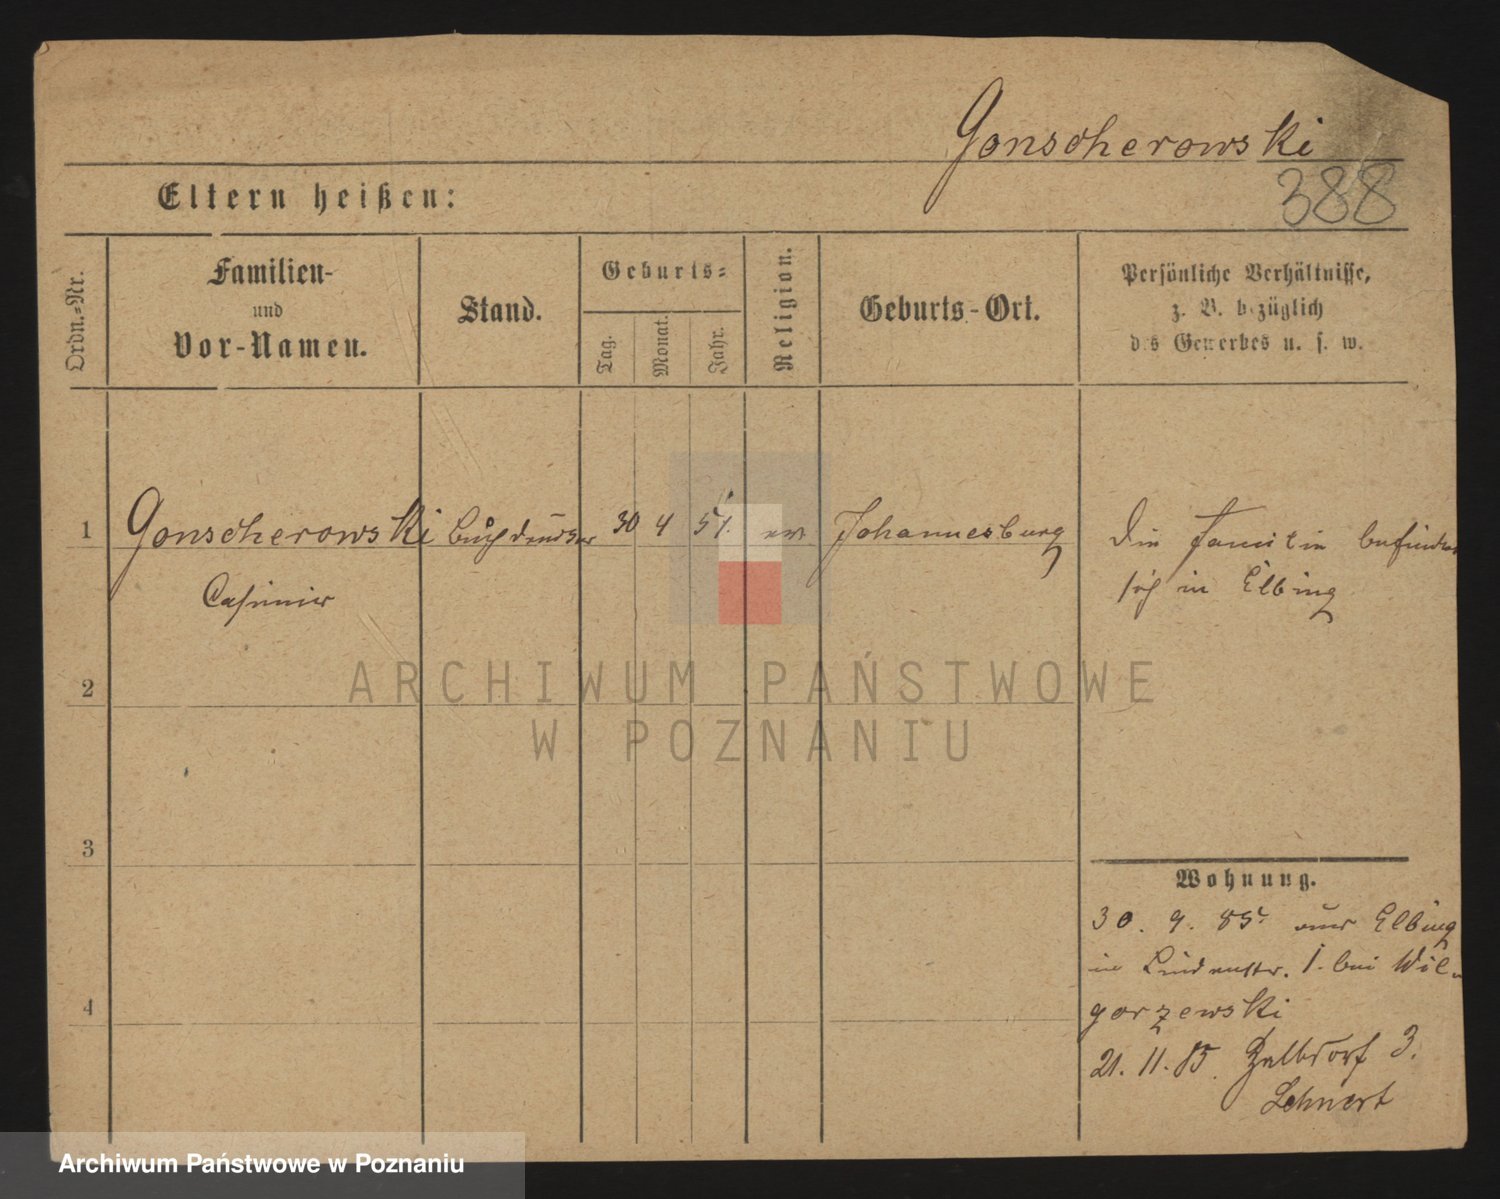 Gonscherowski
388
Eltern heißen:
Ordn.-Nr.
Familien-
und
Vor-Namen.
Stand.
Geburts-
Tag.
Monat.
Jahr.
Religion.
Geburts-Ort.
Persönliche Verhältnisse,
z. B. bezüglich
des Gewerbes u. s. w.
1
Gonscherowski
Casimir
Buchdrucker
30
4
51.
ev.
Johannesburg
Die Familie befindet
sich in Elbing
2
3
4
Wohnung.
30. 9. 85. aus Elbing
in Lindenstr. 1. bei Wil-
gorzewski
21. 11. 85. 3.
Lehnert
ARCHIWUM PAŃSTWOWE
W POZNANIU
Archiwum Państwowe w Poznaniu